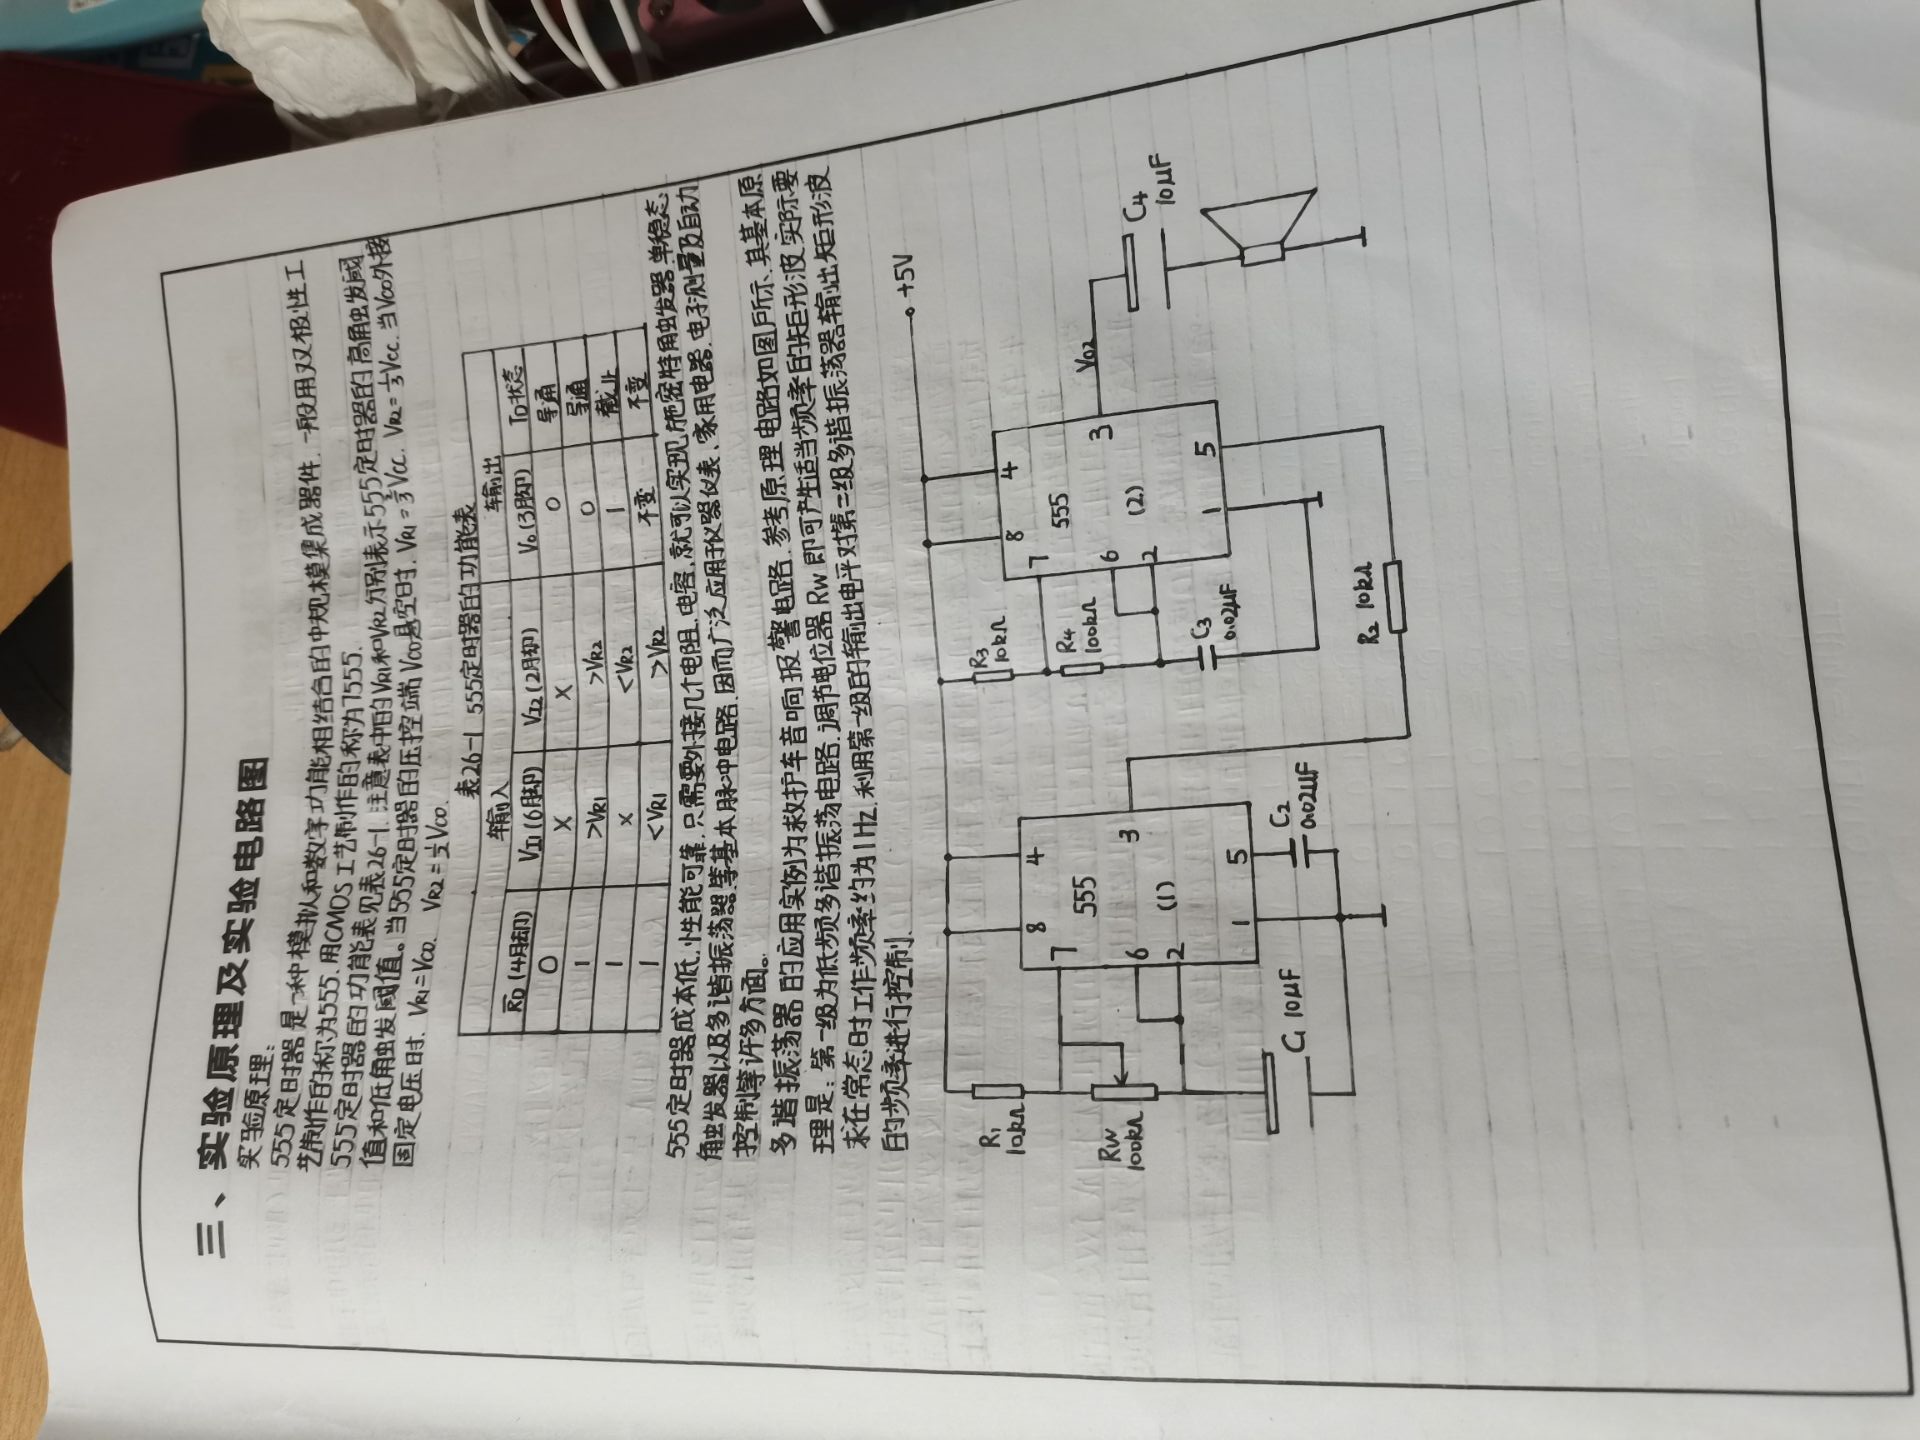 三、实验原理及实验电路图
实验原理:
555定时器是一种模拟和数字功能相结合的中规模集成器件.一般用双极性工
艺制作的称为555.用CMOS工艺制作的称为7555.
555定时器的功能表见表26-1.注意表中的VR1和VR2分别表示555定时器的高触发阈
值和低触发阈值。当555定时器的压控端VCO悬空时.VR1=⅔VCC.VR2=⅓VCC.当VCO外接
固定电压时.VR1=VCO.VR2=½VCO.
表26-1 555定时器的功能表
输入 输出
R̅D(4脚) VI1(6脚) VI2(2脚) Vo(3脚) TD状态
0 × × 0 导通
1 >VR1 >VR2 0 导通
1 × <VR2 1 截止
1 <VR1 >VR2 不变 不变
555定时器成本低.性能可靠.只需要外接几个电阻.电容.就可以实现施密特触发器.单稳态
触发器以及多谐振荡器等基本脉冲电路.因而广泛应用于仪器仪表、家用电器.电子测量及自动
控制等许多方面。
多谐振荡器的应用实例为救护车音响报警电路.参考原理电路如图所示.其基本原
理是:第一级为低频多谐振荡电路.调节电位器Rw即可产生适当频率的矩形波.实际要
求在常态时工作频率约为1Hz.利用第一级的输出电平对第二级多谐振荡器输出矩形波
的频率进行控制.
+5V
R1
10kΩ
8 4
7
555
RW
100kΩ
6
3
2
(1)
1 5
C1 10μF
C2
0.02μF
R3
10kΩ
8 4
7
555
R4
100kΩ
3
Vo2
6
(2)
2
C4
10μF
C3
0.02μF
1 5
R2 10kΩ